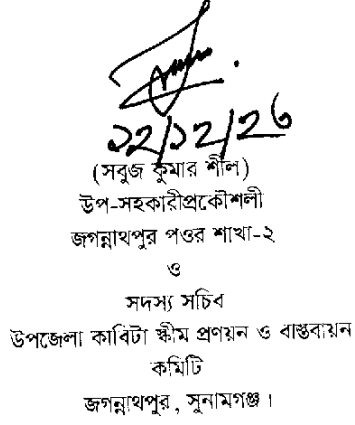 ১২/১২/২৩
(সবুজ কুমার শীল)
উপ-সহকারীপ্রকৌশলী
জগন্নাথপুর পওর শাখা-২
ও
সদস্য সচিব
উপজেলা কাবিটা স্কীম প্রণয়ন ও বাস্তবায়ন
কমিটি
জগন্নাথপুর, সুনামগঞ্জ।